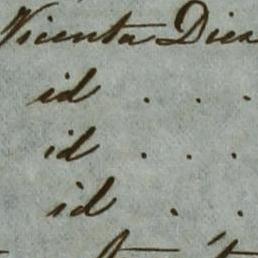 Vicenta Diez
id . . .
id . . .
id . .